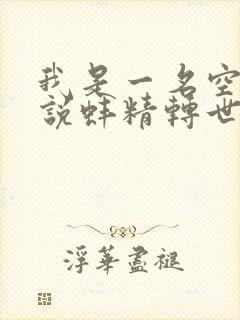 我是一名空
說蚌精轉世
浮華盡褪